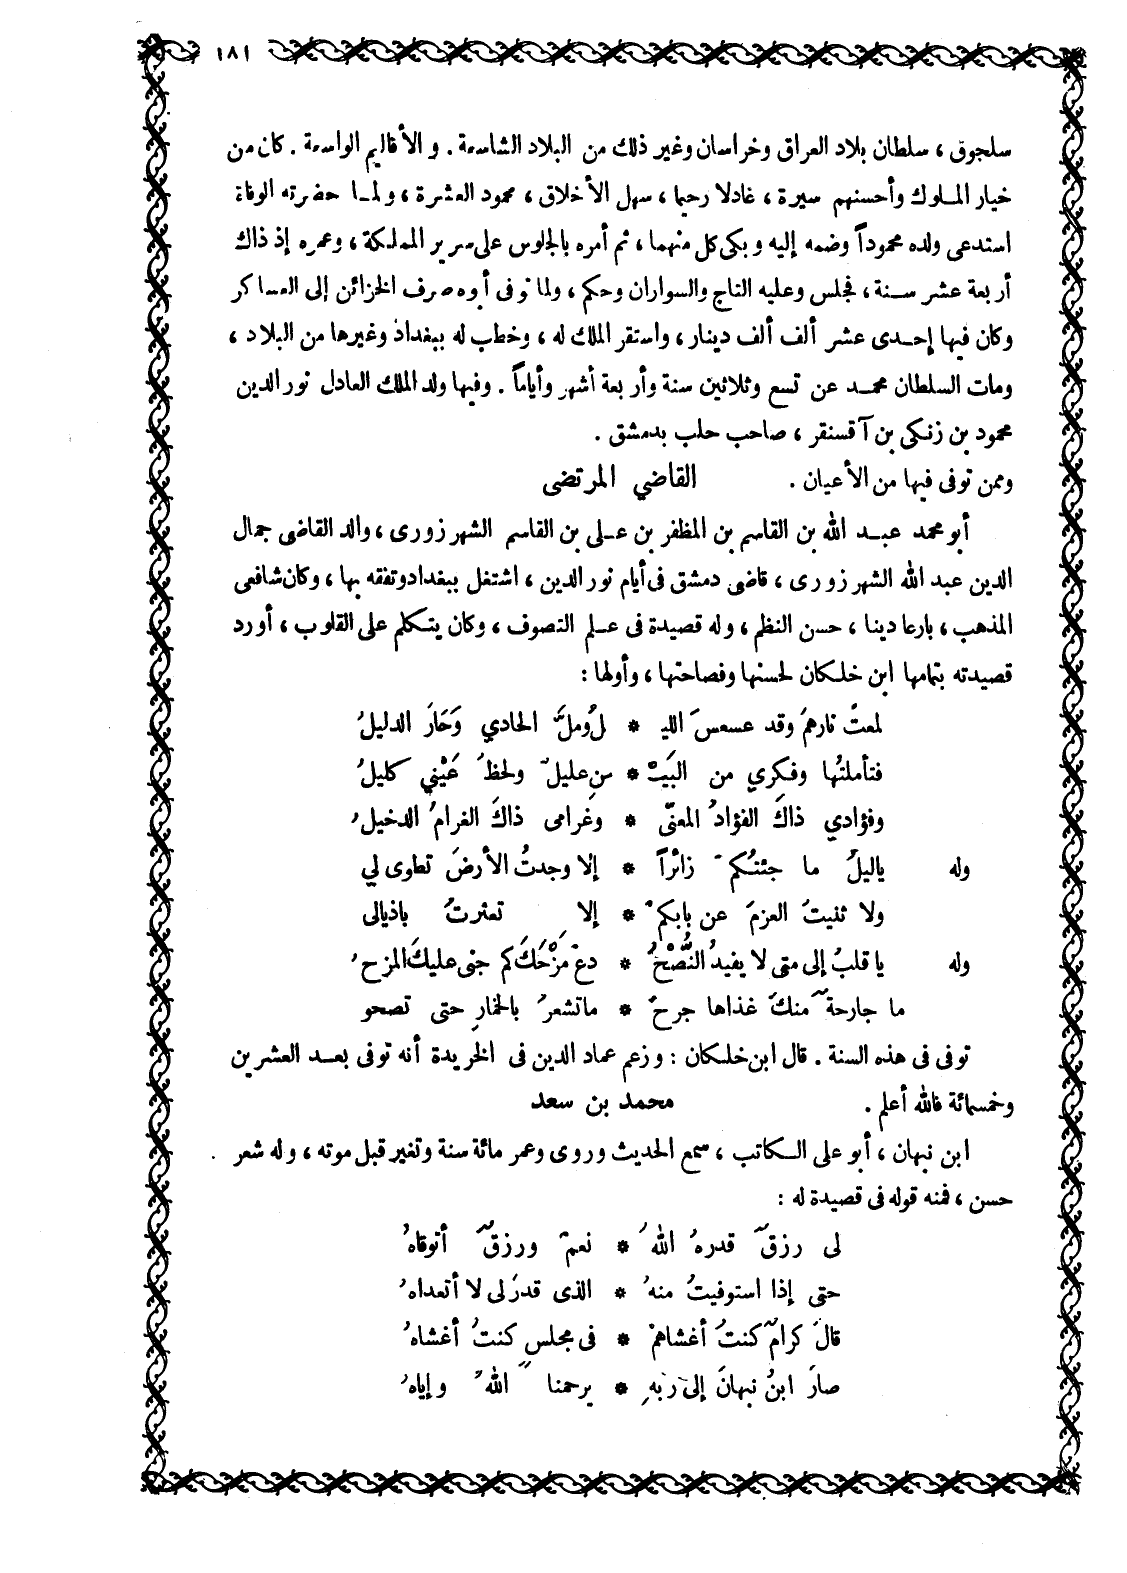 ١٨١
سلجوق ، سلطان بلاد العراق وخراسان وغير ذلك من البلاد الشاسعة . والأقاليم الواسعة . كان من
خيار الملوك وأحسنهم سيرة ، عادلا رحيما ، سهل الأخلاق ، محمود العشرة ، ولما حضرته الوفاة
استدعى ولده محموداً وضمه إليه وبكى كل منهما ، ثم أمره بالجلوس على سرير المملكة ، وعمره إذ ذاك
أربعة عشر سنة ، فجلس وعليه التاج والسواران وحكم ، ولما توفى أبوه صرف الخزائن إلى العساكر
وكان فيها إحدى عشر ألف ألف دينار ، واستقر الملك له ، وخطب له ببغداد وغيرها من البلاد ،
ومات السلطان محمد عن تسع وثلاثين سنة وأربعة أشهر وأياماً . وفيها ولد الملك العادل نور الدين
محمود بن زنكى بن آقسنقر ، صاحب حلب بدمشق .
وممن توفى فيها من الأعيان . القاضي المرتضى
أبو محمد عبد الله بن القاسم بن المظفر بن على بن القاسم الشهرزورى ، والد القاضى جمال
الدين عبد الله الشهرزورى ، قاضى دمشق فى أيام نور الدين ، اشتغل ببغداد وتفقه بها ، وكان شافعى
المذهب ، بارعا دينا ، حسن النظم ، وله قصيدة فى علم التصوف ، وكان يتكلم على القلوب ، أورد
قصيدته بتمامها ابن خلكان لحسنها وفصاحتها ، وأولها :
لمعتْ نارهمَ وقد عسعسَ الليـ * لُ وملَّ الحادي وَحَارَ الدليلُ
فتأملتُها وفكري من البَيْـ * ـنِ عليلٌ ولحظُ عَيْني كليلُ
وفؤادي ذاكَ الفؤادُ المعنّى * وغرامى ذاكَ الغرامُ الدخيلُ
وله ياليلُ ما جئتُكمْ زائراً * إلا وجدتُ الأرضَ تطوى لي
ولا ثنيتُ العزمَ عن بابكمْ * إلا تعثرتُ باذيالى
وله يا قلبُ إلى متى لا يفيدُ النُّصْحُ * دعْ مَزْحَكَ كم جنى عليكَ المزحُ
ما جارحةٌ منكَ غذاها جرحٌ * ماتشعرُ بالخمارِ حتى تصحو
توفى فى هذه السنة . قال ابن خلكان : وزعم عماد الدين فى الخريدة أنه توفى بعد العشرين
وخمسمائة فالله أعلم . محمد بن سعد
ابن نبهان ، أبو على الكاتب ، سمع الحديث وروى وعمر مائة سنة وتغير قبل موته ، وله شعر
حسن ، فمنه قوله فى قصيدة له :
لى رزقٌ قدرهُ اللهُ * نعمْ ورزقٌ أتوقاهُ
حتى إذا استوفيتُ منهُ * الذى قدرَ لى لا أتعداهُ
قالَ كرامٌ كنتُ أغشاهمْ * فى مجلسٍ كنتُ أغشاهُ
صارَ ابنُ نبهانَ إلى ربهِ * يرحمنا اللهُ وإياهُ